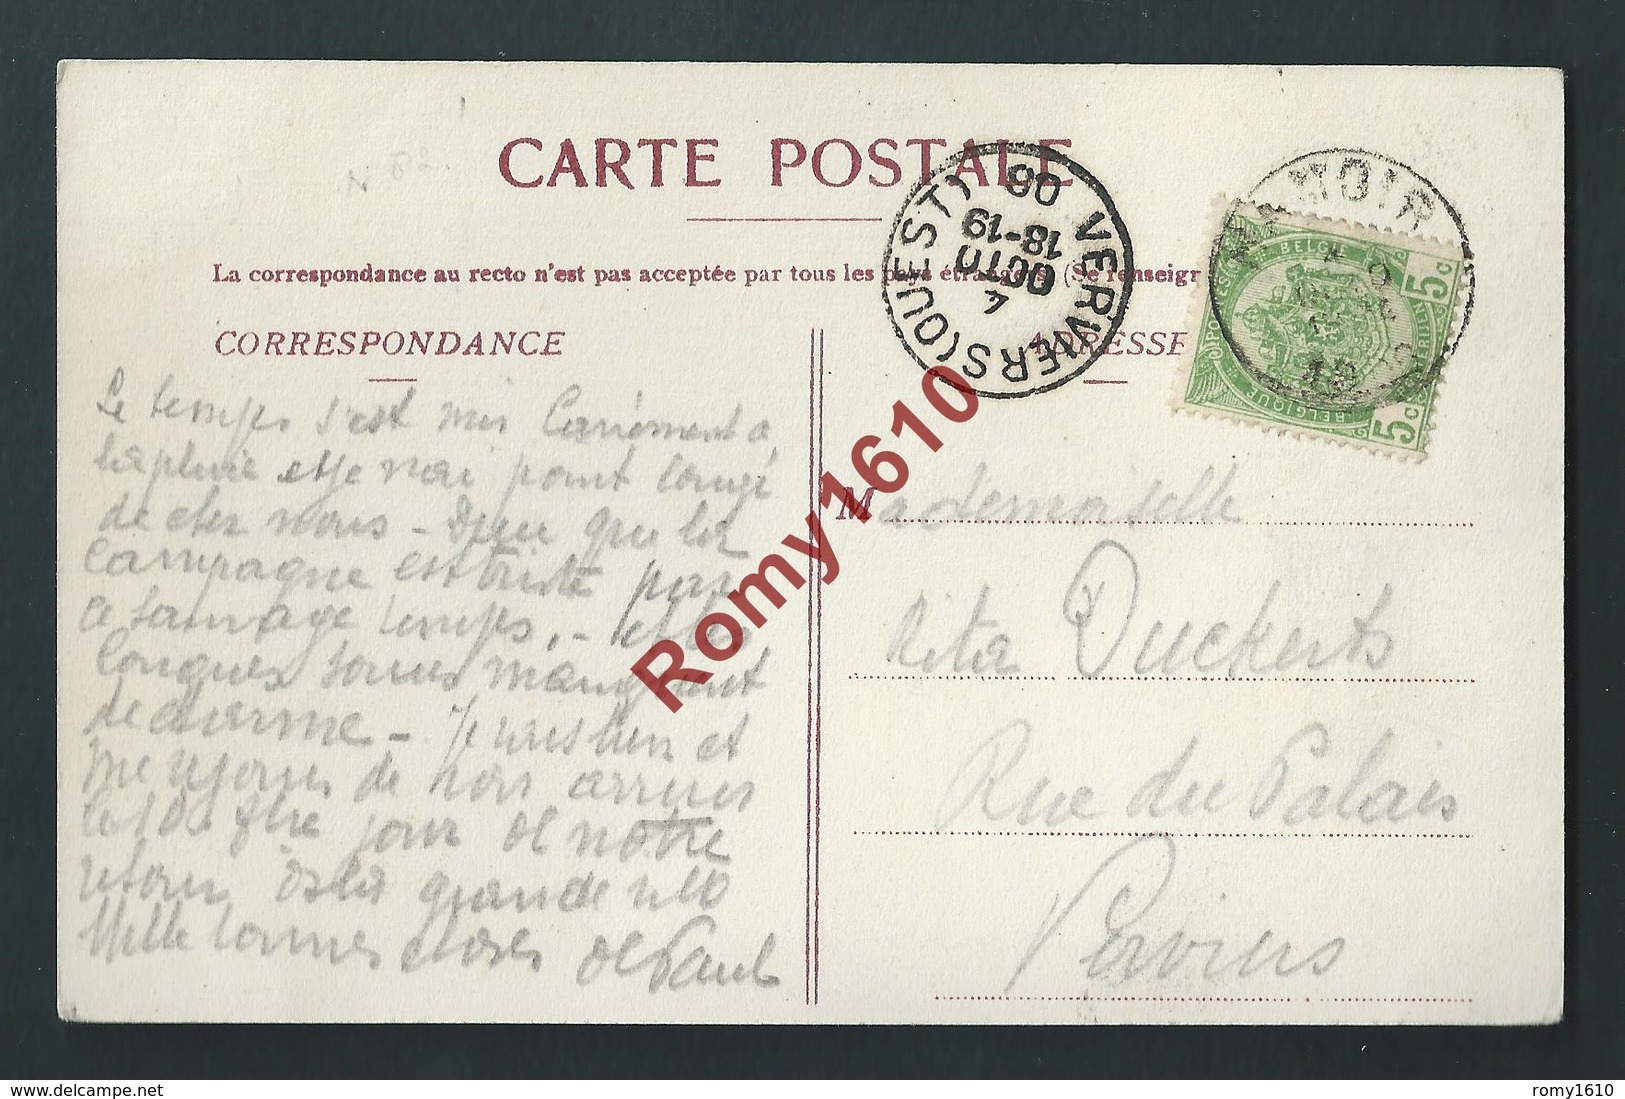 CARTE POSTALE
La correspondance au recto n'est pas acceptée par tous les pays étrangers (Se renseigr
CORRESPONDANCE
ADRESSE
VERVIERS (OUEST)
4
OCTO
18-19
06
HAMOIR
BELGIE
BELGIQUE
5c
5c
Le temps s'est mis Carrément à
la pluie et je n'ai point bougé
de chez nous - Dieu que la
Campagne est triste par
ce sauvage temps. - et les
longues soirées manquent
de charme - Je vais bien et
me réjouis de voir arriver
le jour de notre
retour à la grande ville
Mille bonnes choses de Paul
Mademoiselle
Rita Duckerts
Rue du Palais
Verviers
Romy1610
delcampe.net
romy1610